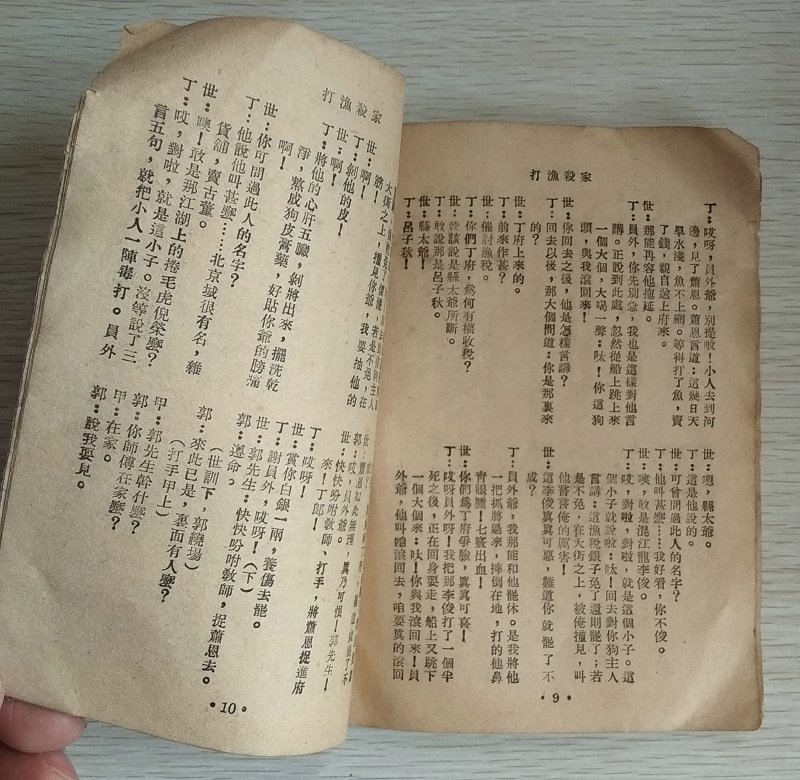 打漁殺家
丁:哎呀,員外爺,別提啦!小人去到河
邊,見了蕭恩。蕭恩言道:這幾日天
旱水淺,魚不上網。等得打了魚,賣
了錢,親自送上府來。
世:那能再容他拖延。
丁:員外,你先別急,我也是這樣對他言
講。正說到此處,忽然從船上跳上來
一個大個,大喝一聲:呔!你這狗
頭,與我滾回來!
世:你回去之後,他是怎樣言講?
丁:回去以後,那大個問道:你是那裏來
的?
世:丁府上來的。
丁:前來作甚?
世:催討漁稅。
丁:你們丁府,爲何有權收稅?
世:就該說是縣太爺所斷。
丁:敢說那是呂子秋。
世:縣太爺!
丁:呂子秋!
世:嗯,縣太爺。
丁:這是他說的。
世:可曾問過此人的名字?
丁:他叫甚麼……我好看,你不俊。
世:噢,敢是混江龍李俊。
丁:哎,對啦,對啦,就是這個小子。這
個小子就說啦:呔!回去對你狗主人
言講:這漁稅銀子免了還則罷了;若
是不免,在大街之上,被俺撞見,叫
他嘗嘗俺的厲害!
世:這李俊真真可惡,難道你就罷了不
成?
丁:員外爺,我那能和他罷休。是我將他
一把抓將過來,摔倒在地,打的他鼻
青眼腫!七竅出血!
世:你們爲丁府爭臉,真真可喜!
丁:哎呀員外呀!我把那李俊打了一個半
死之後,正在回身要走,船上又跳下
一個大個來:呔!你與我滾回來!員
外爺,他叫咱滾回去,咱要真的滾回
•9•
打漁殺家
大街之上,撞見你爺,我要抽他的
筋!
世:啊!
丁:剝他的皮!
世:啊!
丁:將他的心肝五臟,剝將出來,擺洗乾
淨,熬成狗皮膏藥,好貼你爺的膀痛
啊!
世:你可問過此人的名字?
丁:他說他叫甚麼……北京城很有名,雜
貨舖,賣古董。
世:噢!敢是那江湖上的捲毛虎倪榮麼?
丁:哎,對啦,就是這小子。沒等說了三
言五句,就把小人一陣毒打。員外
郭:哎,員外爺。
世:快快吩咐教師、打手,將蕭恩捉進府
來!丁郎!
丁:哎呀!
世:賞你白銀一兩,養傷去罷。
丁:謝員外,哎呀!(下)
世:郭先生:快快吩咐教師,捉蕭恩去。
郭:遵命。
(世訓下,郭繞場)
郭:來此已是,裏面有人麼?
(打手甲上)
甲:郭先生幹什麼?
郭:你師傅在家麼?
甲:在家。
郭:說我要見。
•10•